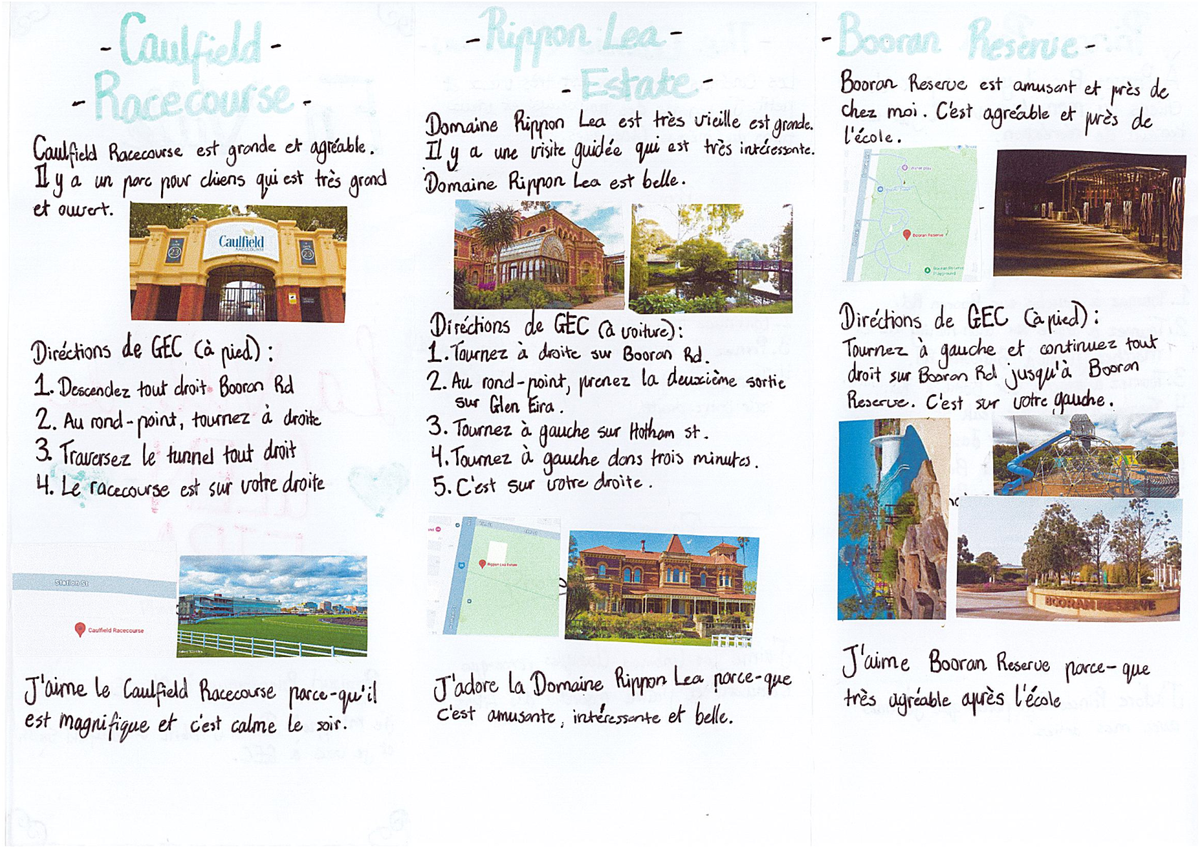 - Caulfield -
- Racecourse -
Caulfield Racecourse est grande et agréable.
Il y a un parc pour chiens qui est très grand
et ouvert.
23
Caulfield
RACECOURSE
23
Diréctions de GEC (à pied) :
1. Descendez tout droit Booran Rd
2. Au rond-point, tournez à droite
3. Traversez le tunnel tout droit
4. Le racecourse est sur votre droite
Station St
Caulfield Racecourse
J'aime le Caulfield Racecourse parce-qu'il
est magnifique et c'est calme le soir.
- Rippon Lea -
- Estate -
Domaine Rippon Lea est très vieille est grande.
Il y a une visite guidée qui est très intéressante.
Domaine Rippon Lea est belle.
Diréctions de GEC (à voiture) :
1. Tournez à droite sur Booran Rd.
2. Au rond-point, prenez la deuxième sortie
sur Glen Eira.
3. Tournez à gauche sur Hotham st.
4. Tournez à gauche dans trois minutes.
5. C'est sur votre droite.
Rippon Lea Estate
J'adore la Domaine Rippon Lea parce-que
c'est amusante, intéressante et belle.
- Booran Reserve -
Booran Reserve est amusant et près de
chez moi. C'est agréable et près de
l'école.
Booran Reserve
Diréctions de GEC (à pied) :
Tournez à gauche et continuez tout
droit sur Booran Rd jusqu'à Booran
Reserve. C'est sur votre gauche.
BOORAN RESERVE
J'aime Booran Reserve parce-que
très agréable après l'école